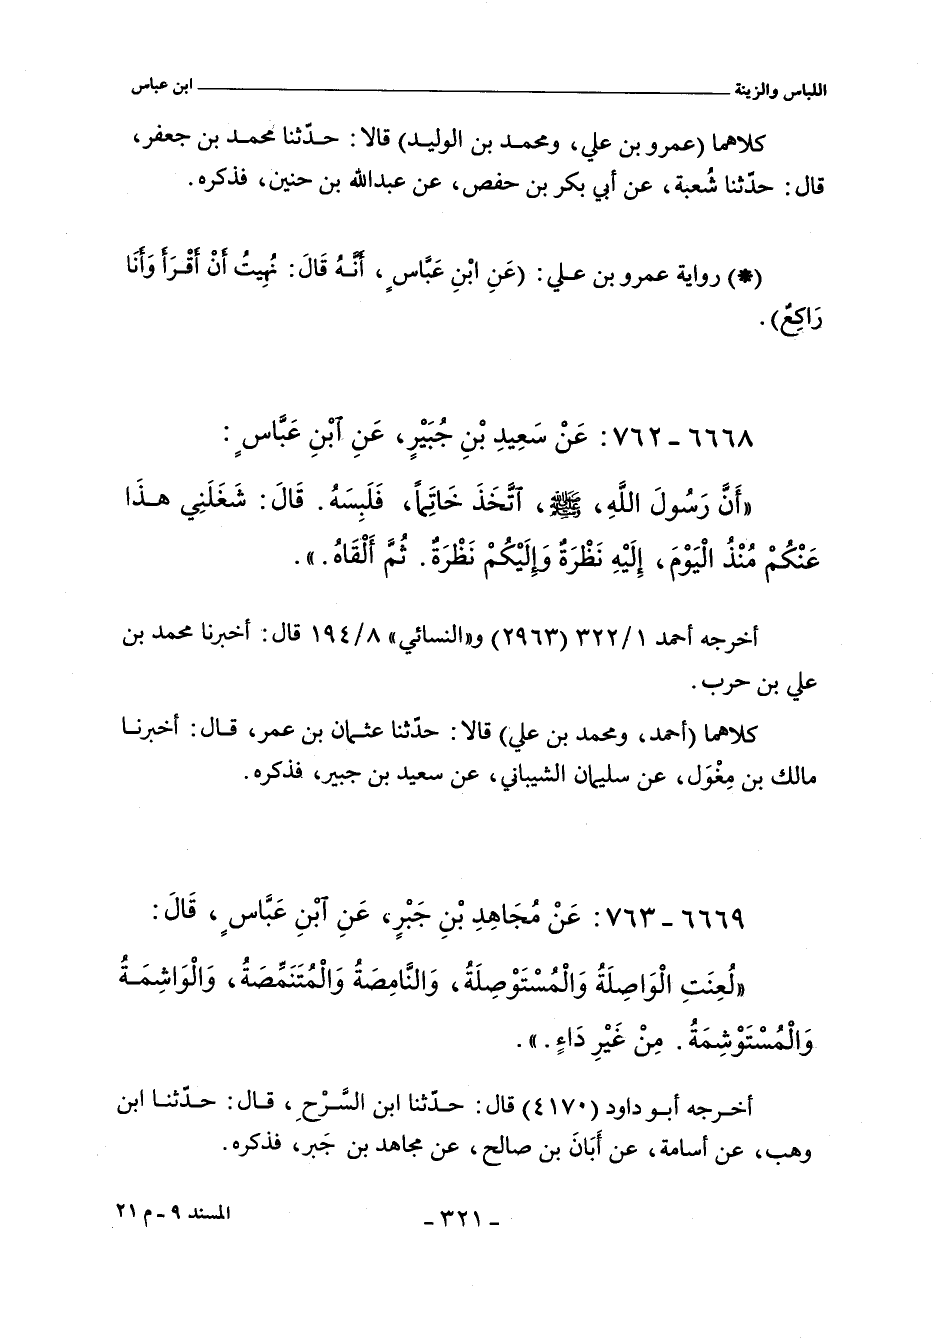 اللباس والزينة ـــــــــ ابن عباس
كلاهما (عمرو بن علي، ومحمد بن الوليد) قالا: حدّثنا محمد بن جعفر،
قال: حدّثنا شُعبة، عن أبي بكر بن حفص، عن عبدالله بن حنين، فذكره.
(*) رواية عمرو بن علي: (عَنِ ابْنِ عَبَّاسٍ، أَنَّهُ قَالَ: نُهِيتُ أَنْ أَقْرَأَ وَأَنَا
رَاكِعٌ).
٦٦٦٨ ـ ٧٦٢: عَنْ سَعِيدِ بْنِ جُبَيْرٍ، عَنِ آبْنِ عَبَّاسٍ:
«أَنَّ رَسُولَ اللَّهِ، ﷺ، آتَّخَذَ خَاتِماً، فَلَبِسَهُ. قَالَ: شَغَلَنِي هـٰذَا
عَنْكُمْ مُنْذُ الْيَوْمَ، إِلَيْهِ نَظْرَةٌ وَإِلَيْكُمْ نَظْرَةٌ. ثُمَّ أَلْقَاهُ.».
أخرجه أحمد ٣٢٢/١ (٢٩٦٣) و«النسائي» ١٩٤/٨ قال: أخبرنا محمد بن
علي بن حرب.
كلاهما (أحمد، ومحمد بن علي) قالا: حدّثنا عثمان بن عمر، قال: أخبرنا
مالك بن مِغْوَل، عن سليمان الشيباني، عن سعيد بن جبير، فذكره.
٦٦٦٩ ـ ٧٦٣: عَنْ مُجَاهِدِ بْنِ جَبْرٍ، عَنِ آبْنِ عَبَّاسٍ، قَالَ:
«لُعِنَتِ الْوَاصِلَةُ وَالْمُسْتَوْصِلَةُ، وَالنَّامِصَةُ وَالْمُتَنَمِّصَةُ، وَالْوَاشِمَةُ
وَالْمُسْتَوْشِمَةُ. مِنْ غَيْرِ دَاءٍ.».
أخرجه أبو داود (٤١٧٠) قال: حدّثنا ابن السَّرْحِ، قال: حدّثنا ابن
وهب، عن أسامة، عن أَبَانَ بن صالح، عن مجاهد بن جَبر، فذكره.
ـ ٣٢١ ـ
المسند ٩ ـ م ٢١